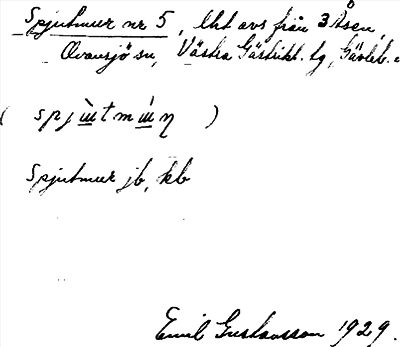 Spjutmur nr 5, lht avs från 3 Åsen,
Ovansjö sn, Västra Gästrikl. tg, Gävleb.
( spju̇tmu̇ŋ )
Spjutmur jb, kb
Emil Gustavsson 1929.